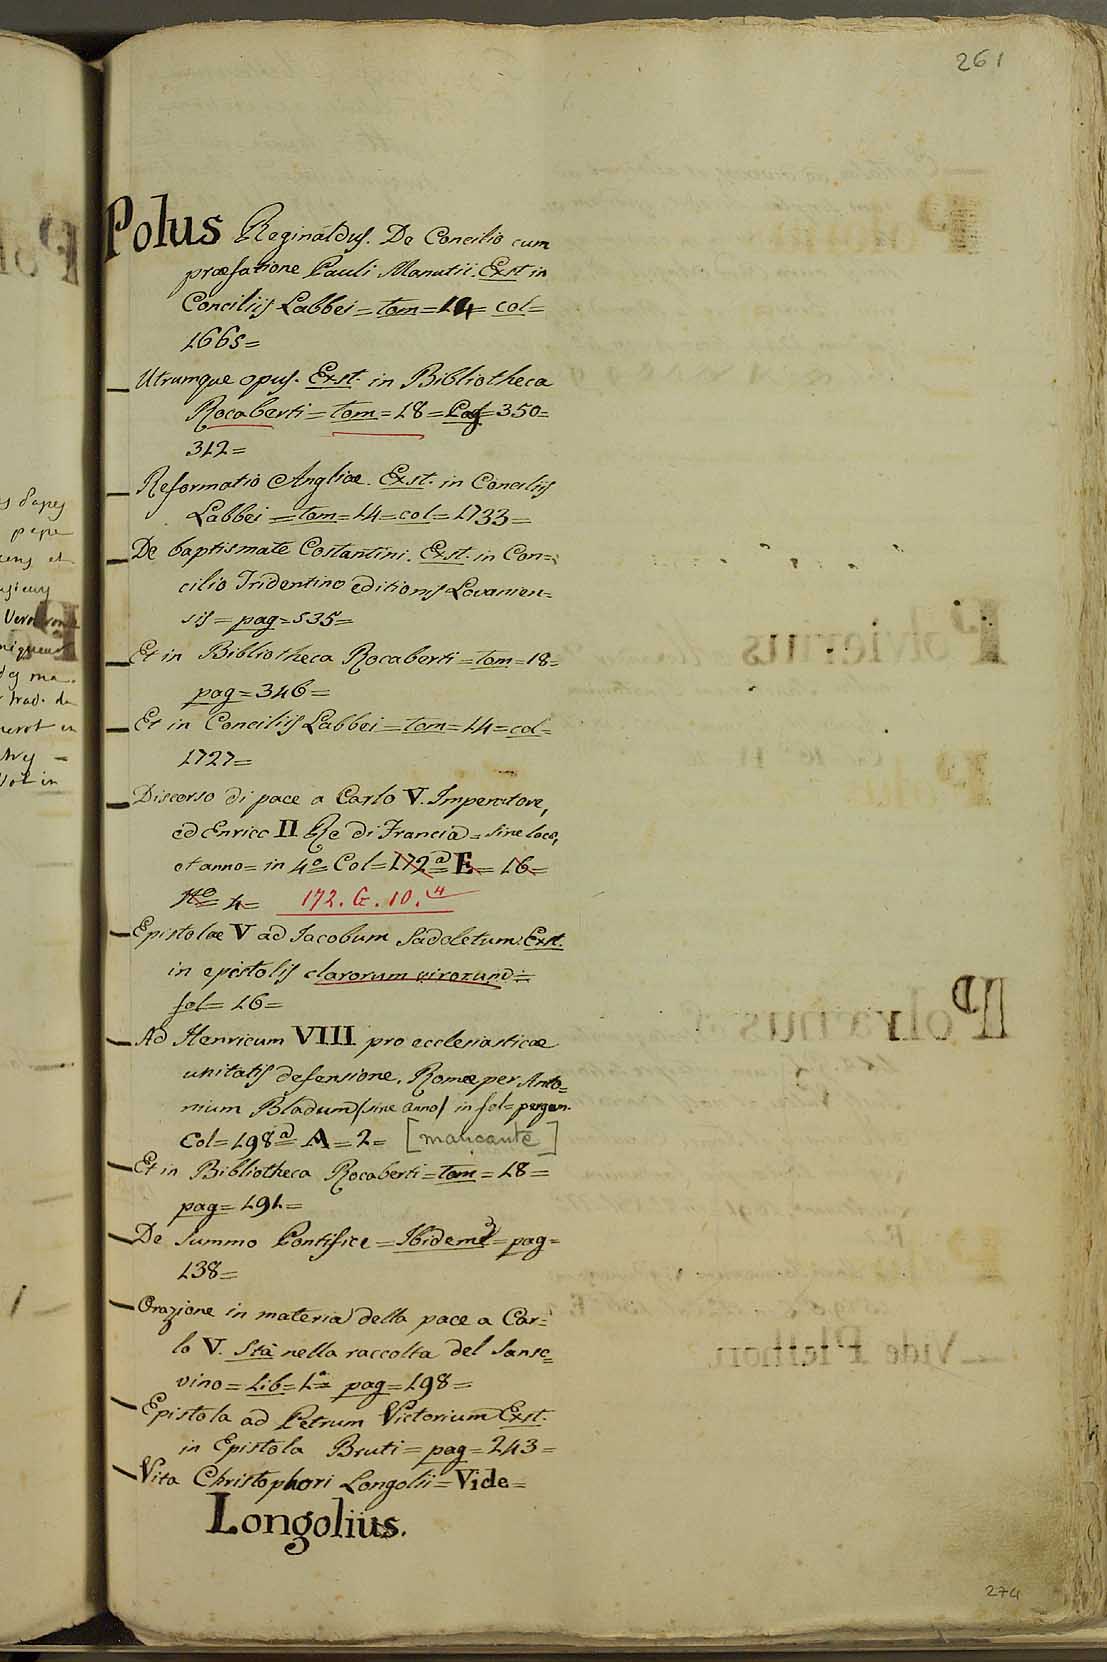 261
Polus Reginaldus. De Concilio cum
præfatione Pauli Manutii. Exst. in
Conciliis Labbei = tom = 14 = col =
1665 =
Utrumque opus. Exst. in Bibliotheca
Rocaberti = tom = 18 = Pag = 350 =
312 =
Reformatio Angliæ. Exst. in Conciliis
Labbei = tom = 14 = col = 1733 =
De baptismate Costantini. Exst. in Con=
cilio Tridentino editionis Lovanien=
sis = pag = 535 =
Et in Bibliotheca Rocaberti = tom = 18 =
pag = 346 =
Et in Conciliis Labbei = tom = 14 = col =
1727 =
Discorso di pace a Carlo V. Imperatore,
ed Enrico II Re di Francia = sine loco,
et anno = in 4º = Col = 172ª = E = 16 =
Nº = 4 = 172. G. 10. 4
Epistolæ V ad Jacobum Sadoletum. Exst.
in epistolis clarorum virorum =
fol = 16 =
Ad Henricum VIII pro ecclesiasticæ
unitatis defensione. Romæ per Anto=
nium Bladum (sine anno) in fol = pergam.
Col = 198ª = A = 2 = [mancante]
Et in Bibliotheca Rocaberti = tom = 18 =
pag = 191 =
De Summo Pontifice = Ibidem = pag =
138 =
Orazione in materia della pace a Car=
lo V. Sta nella raccolta del Sanso=
vino = Lib = 1º = pag = 198 =
Epistola ad Petrum Victorium Exst.
in Epistola Bruti = pag = 243 =
Vita Christophori Longolii = Vide =
Longolius.
274